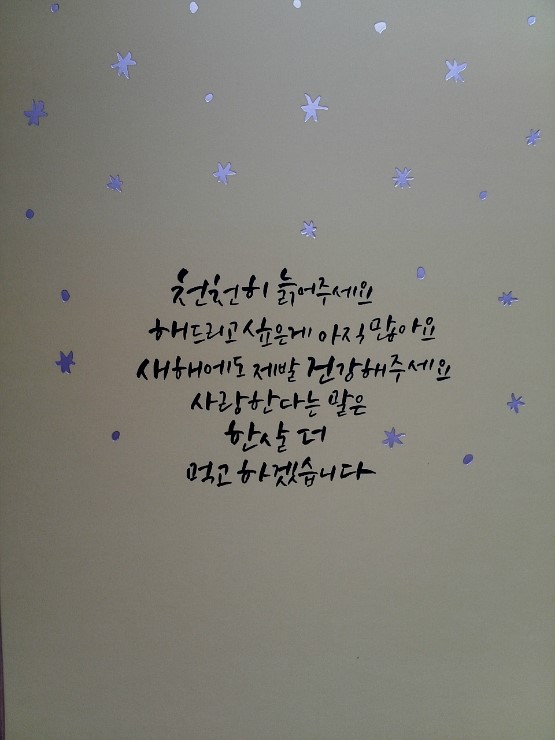 천천히 늙어주세요
해드리고 싶은게 아직 많아요
새해에도 제발 건강해주세요
사랑한다는 말은
한살 더
먹고 하겠습니다